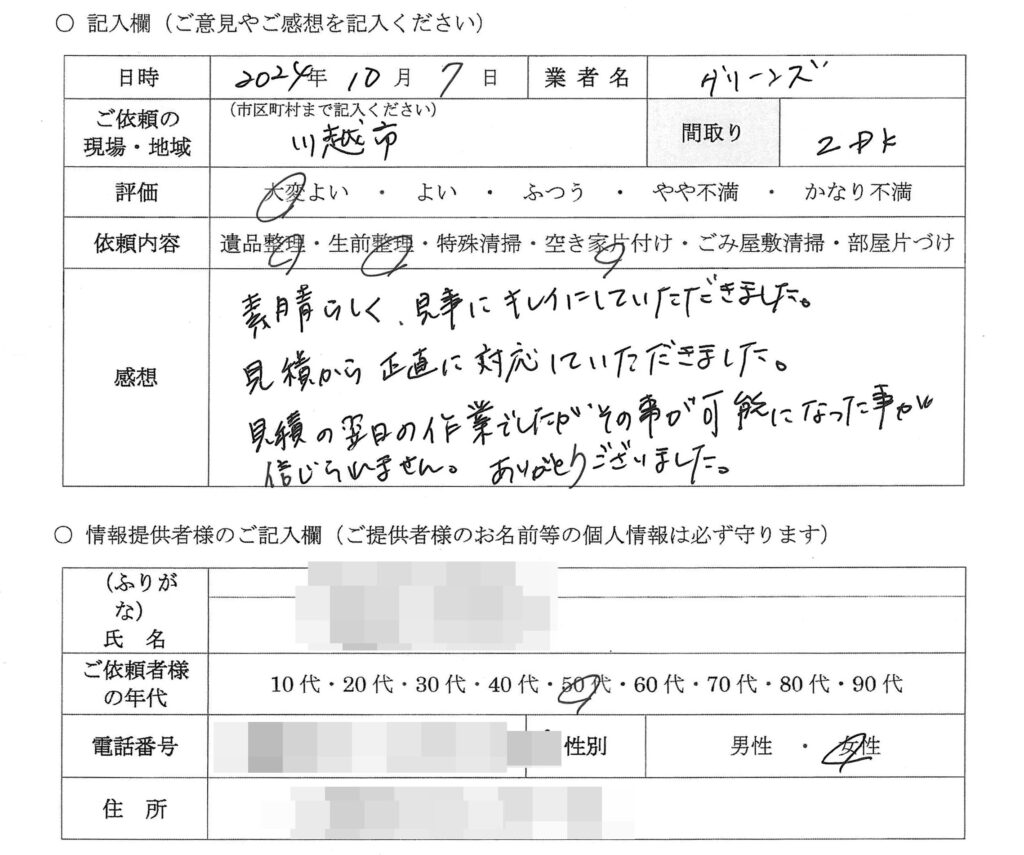 ○ 記入欄（ご意見やご感想を記入ください）
日時 2024年 10月 7日 業者名 グリーンズ
ご依頼の現場・地域 （市区町村まで記入ください） 川越市 間取り 2DK
評価 大変よい ・ よい ・ ふつう ・ やや不満 ・ かなり不満
依頼内容 遺品整理・生前整理・特殊清掃・空き家片付け・ごみ屋敷清掃・部屋片づけ
感想
素晴らしく、見事にキレイにしていただきました。
見積から正直に対応していただきました。
見積の翌日の作業でしたがその事が可能になった事が
信じられません。ありがとうございました。
○ 情報提供者様のご記入欄（ご提供者様のお名前等の個人情報は必ず守ります）
（ふりがな）
氏 名
ご依頼者様の年代 10代・20代・30代・40代・50代・60代・70代・80代・90代
電話番号 性別 男性 ・ 女性
住 所